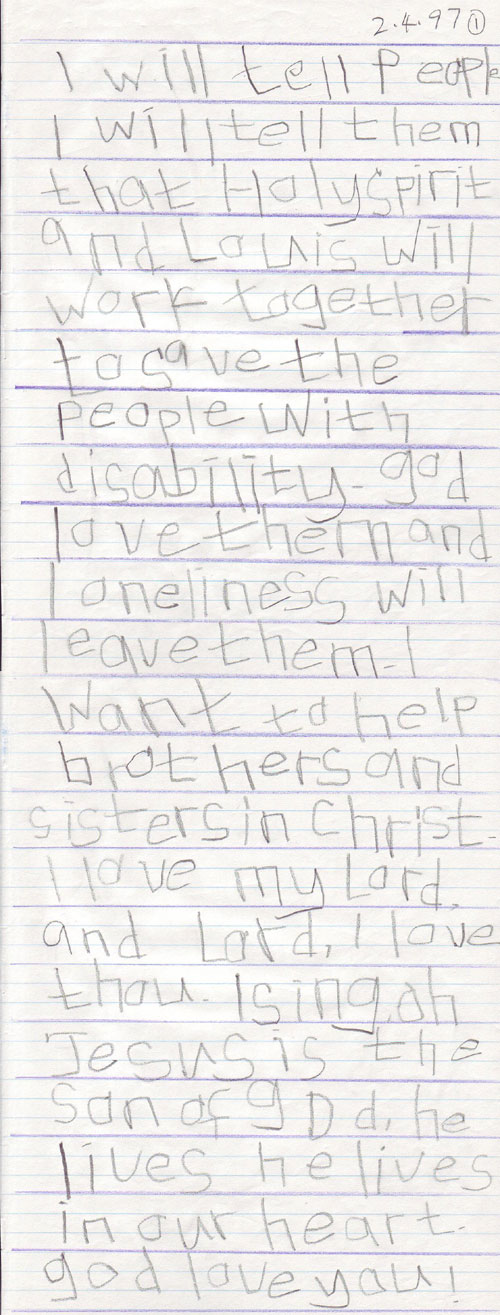 2.4.97 ①
I will tell People
I will tell them
that Holy spirit
and Louis will
work together
to save the
people with
disability. god
love them and
loneliness will
leave them. I
Want to help
brothers and
sisters in Christ.
I love my Lord.
and Lord, I love
thou. I sing, oh
Jesus is the
son of gDd, he
lives he lives
in our heart.
god love you!